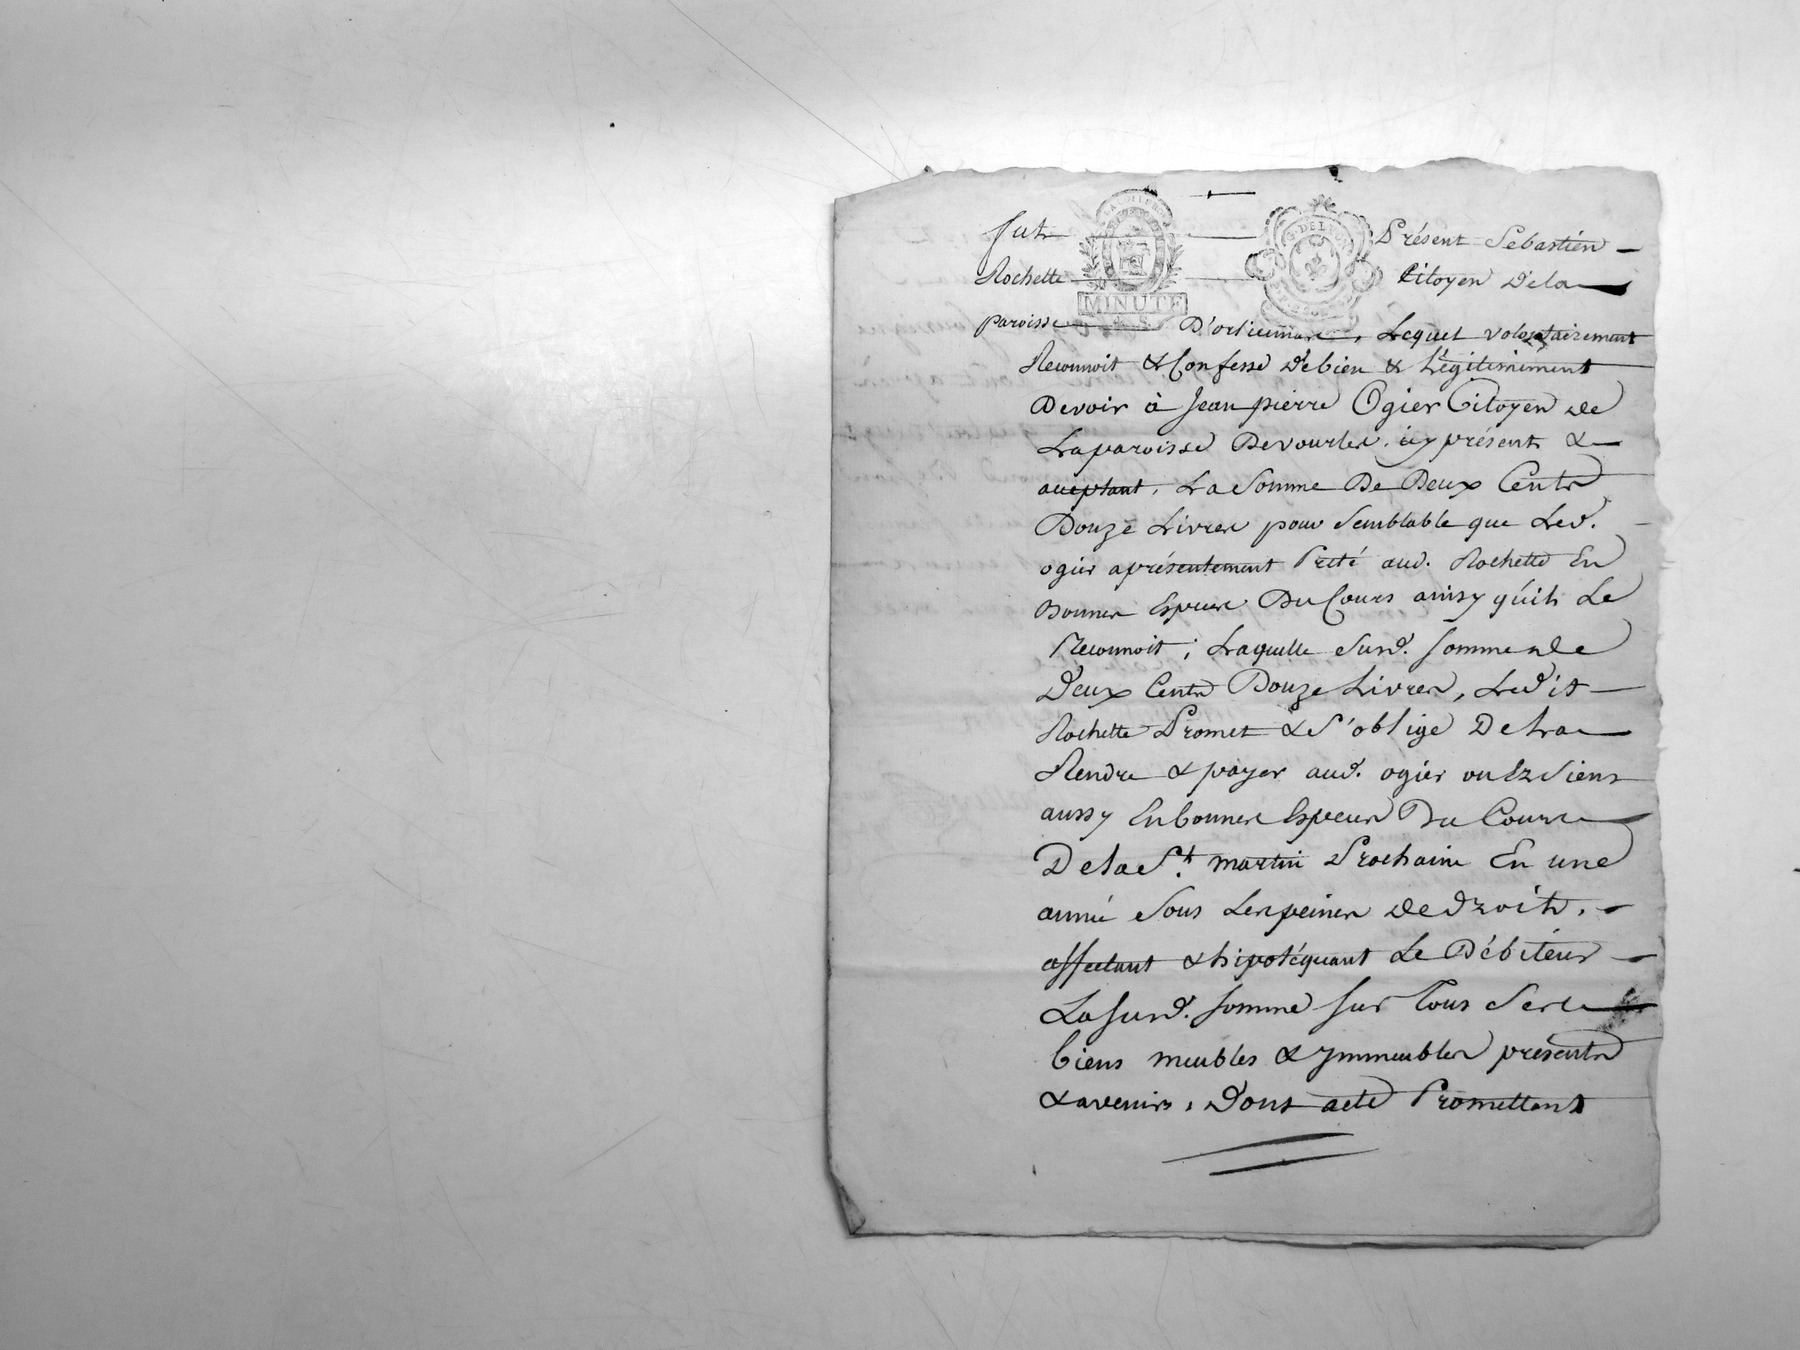 Fut Présent Sebastien
Rochette Citoyen Dela
paroisse D'orlienas, Lequel volontairement
Reconnoit & Confesse debien & Légitimement
Devoir à Jean pierre Ogier Citoyen de
Laparoisse Devourles. icy présent &
acceptant, La Somme De Deux Cents
Douze Livres pour Semblable que Led.
ogier aprésentement Preté aud. Rochette En
Bonnes Especes Du Cours ainsy quil Le
Reconnoit; Laquelle Susd. Somme de
Deux Cents Douze Livres, Ledit
Rochette Promet & S'oblige Dela
Rendre & payer aud. ogier ou Ez Siens
aussy En bonnes Especes Du Cours
Dela St. martin Prochaine En une
année Sous Les peines de droit.
affectant & hipotéquant Le Débiteur
La Susd. Somme Sur Tous Ses
biens meubles & ymmeubles présents
& avenirs, Dont acte Promettant
MINUTE
G. DE LYON